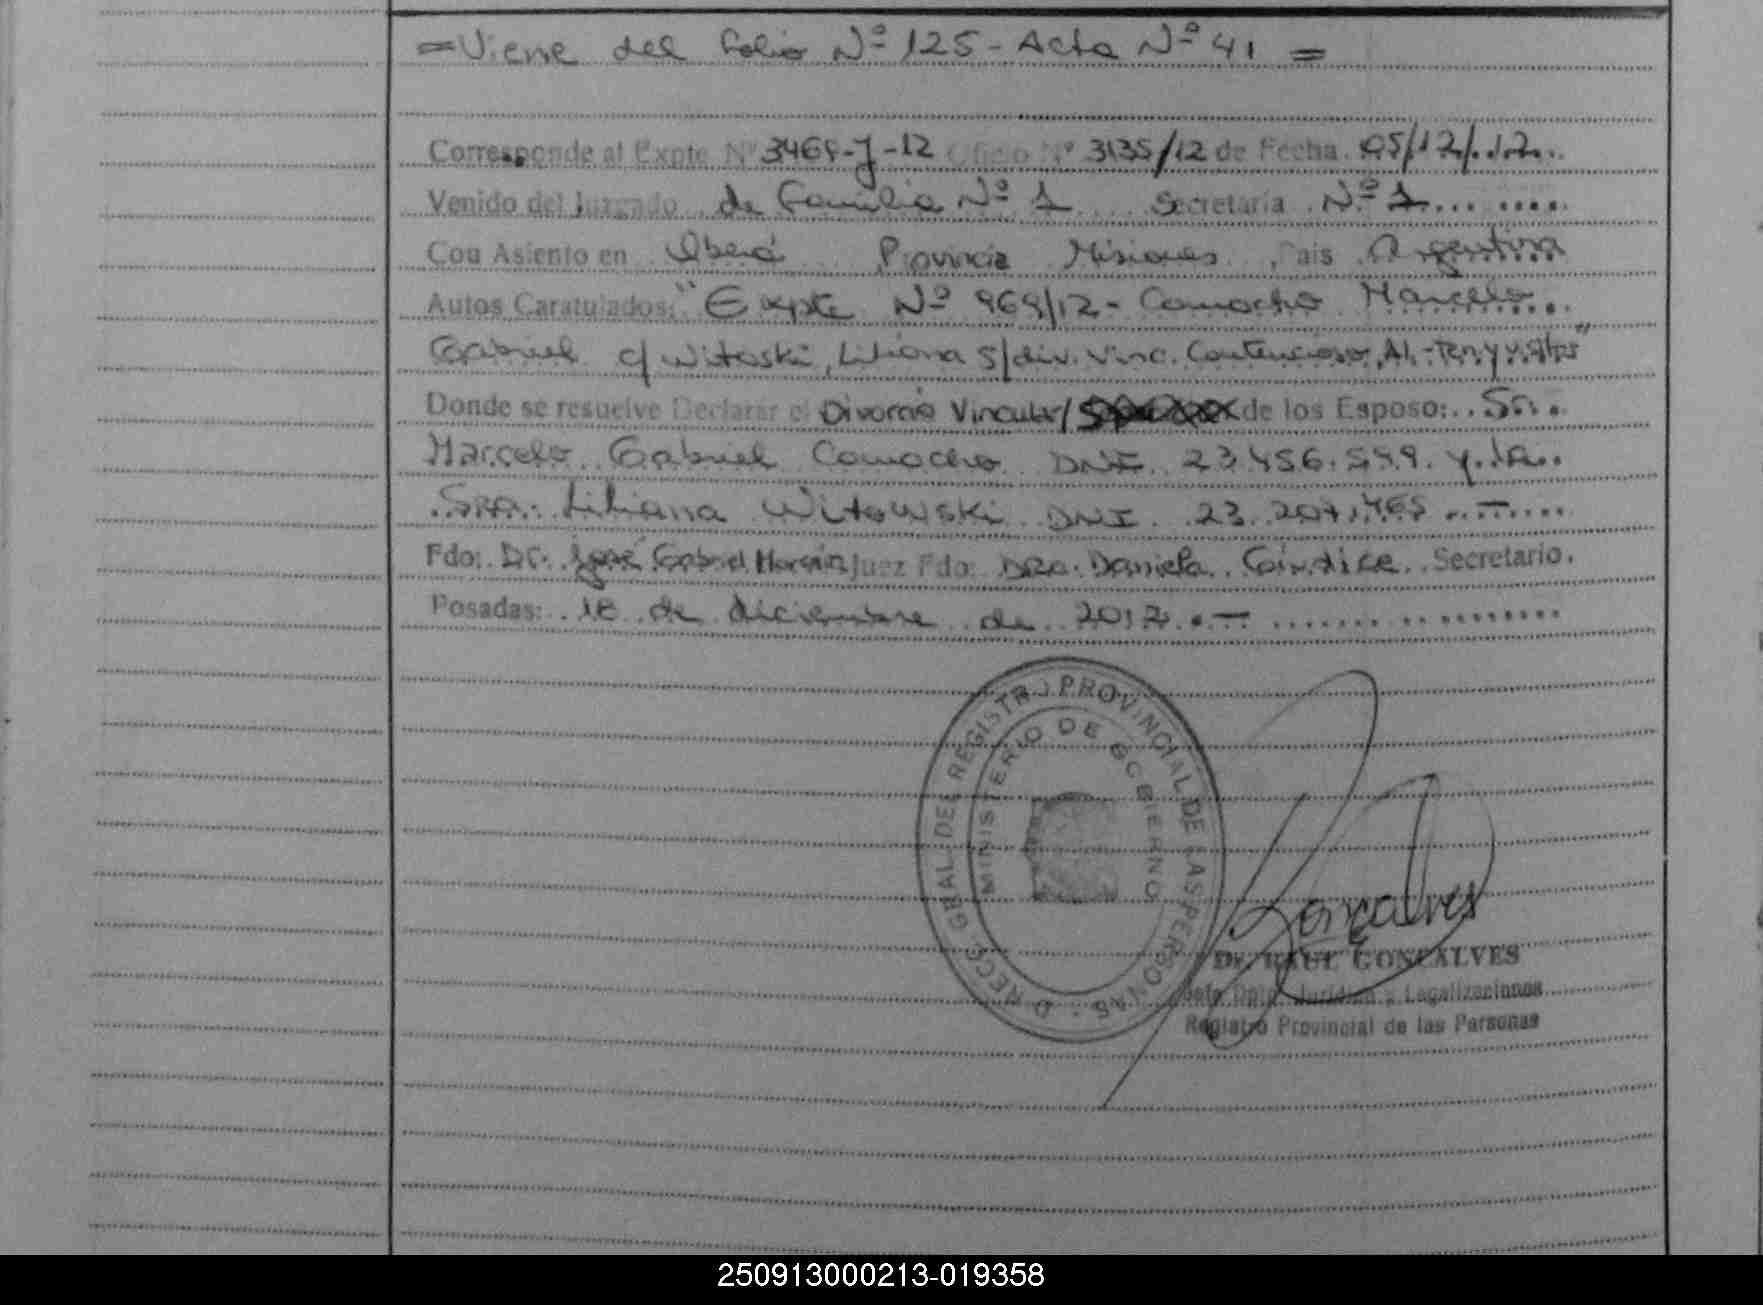 =Viene del folio Nº 125 - Acta Nº 41 =
Corresponde al Expte. Nº 3469-J-12 Oficio Nº 3135/12 de Fecha 05/12/.12.
Venido del Juzgado de Familia Nº 1 Secretaría Nº 1
Con Asiento en Oberá Provincia Misiones País Argentina
Autos Caratulados: "Expte Nº 969/12 - Camacho Marcelo
Gabriel c/ Witoski, Liliana s/ div. Vinc. Contencioso, Al.-Ten. y
Donde se resuelve Declarar el Divorcio Vincular/ de los Esposo: Sr.
Marcelo Gabriel Camacho DNI 23.456.549. y la
Sra. Liliana Witowski DNI 23.207.465 -
Fdo: Dr. José Gabriel Juez Fdo: Dra. Daniela Secretario.
Posadas: 18 de diciembre de 2012. -
D RECC GRAL. DEL REGISTRO PROVINCIAL DE LAS PERSONAS
MINISTERIO DE GOBIERNO
Gonçalves
Dr. RAUL GONCALVES
Jefe Dpto. Jurídico y Legalizaciones
Registro Provincial de las Personas
250913000213-019358